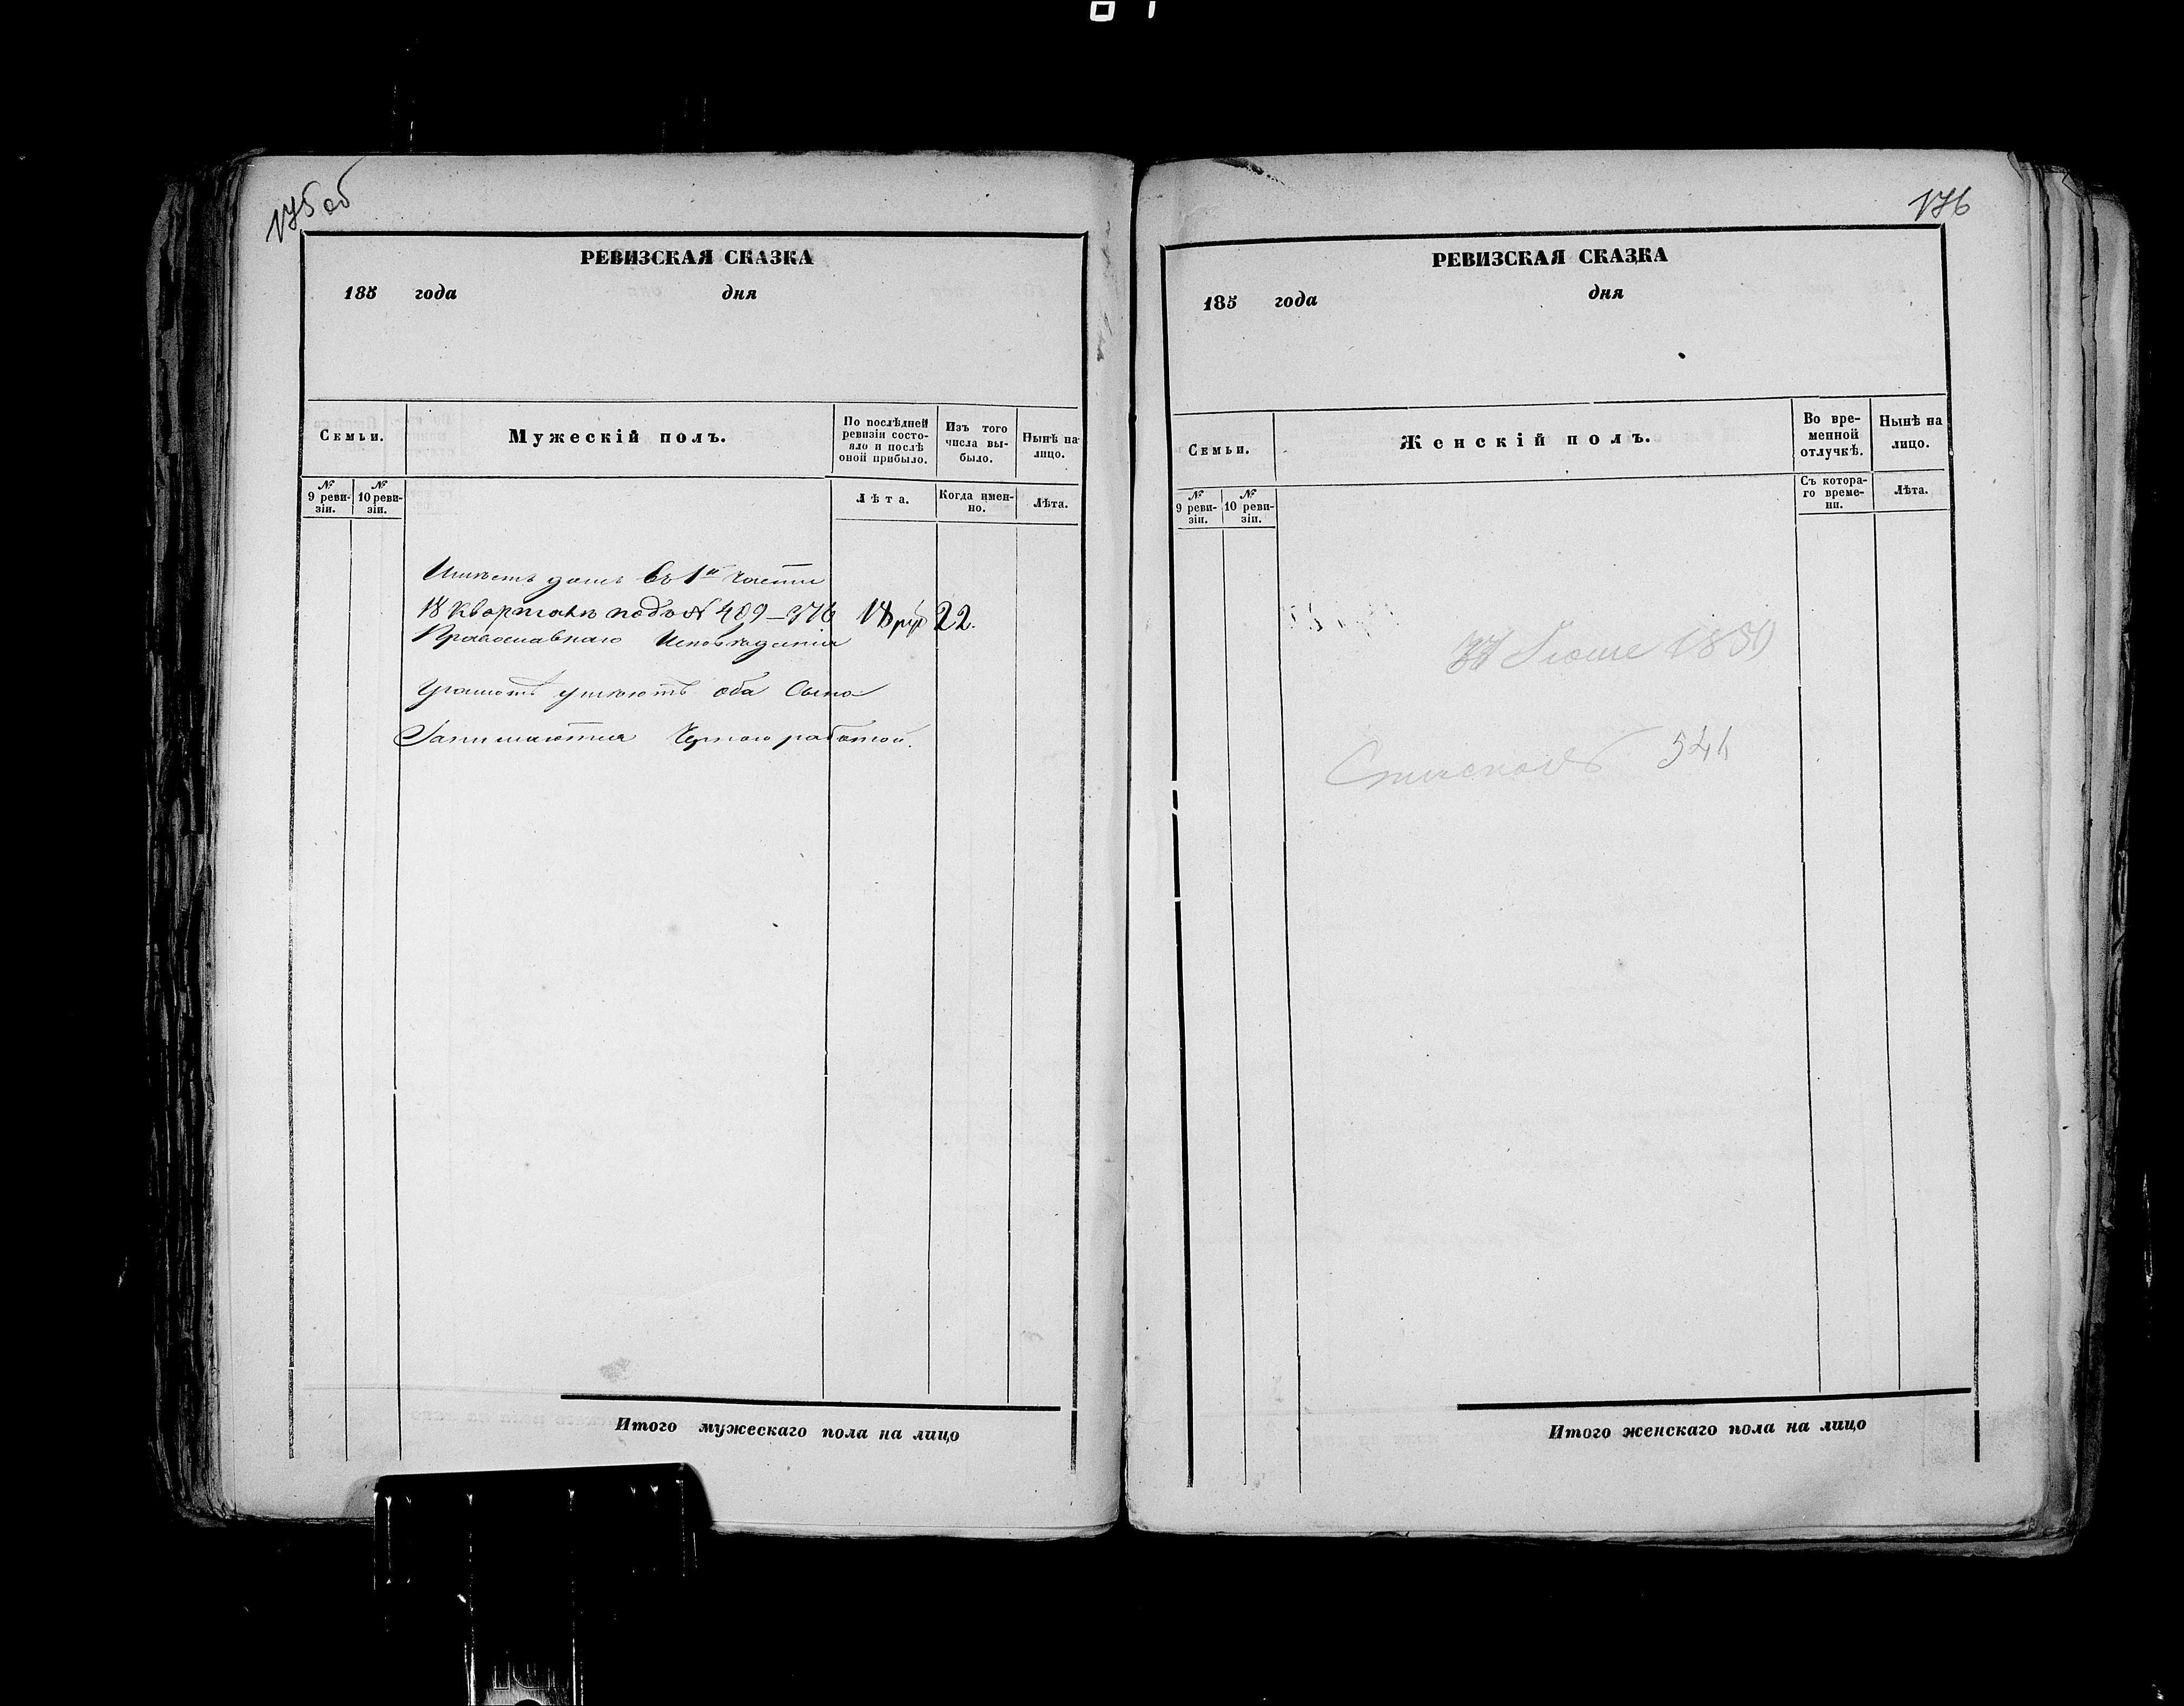 175 об
РЕВИЗСКАЯ СКАЗКА
185 года дня
Семьи.
Мужескій полъ.
По послѣдней ревизіи состояло и послѣ оной прибыло.
Изъ того числа выбыло.
Нынѣ на лицо.
№ 9 ревизіи.
№ 10 ревизіи.
Лѣта.
Когда именно.
Лѣта.
Имѣетъ домъ въ 1й части
18 Квартала подъ № 489–376 18 22.
Православнаго Исповѣданія
Грамотѣ умѣютъ оба Сына
Занимаются Черною работой.
Итого мужескаго пола на лицо
176
РЕВИЗСКАЯ СКАЗКА
185 года дня
Семьи.
Женскій полъ.
Во временной отлучкѣ.
Нынѣ на лицо.
№ 9 ревизіи.
№ 10 ревизіи.
Съ котораго времени.
Лѣта.
541
Итого женскаго пола на лицо